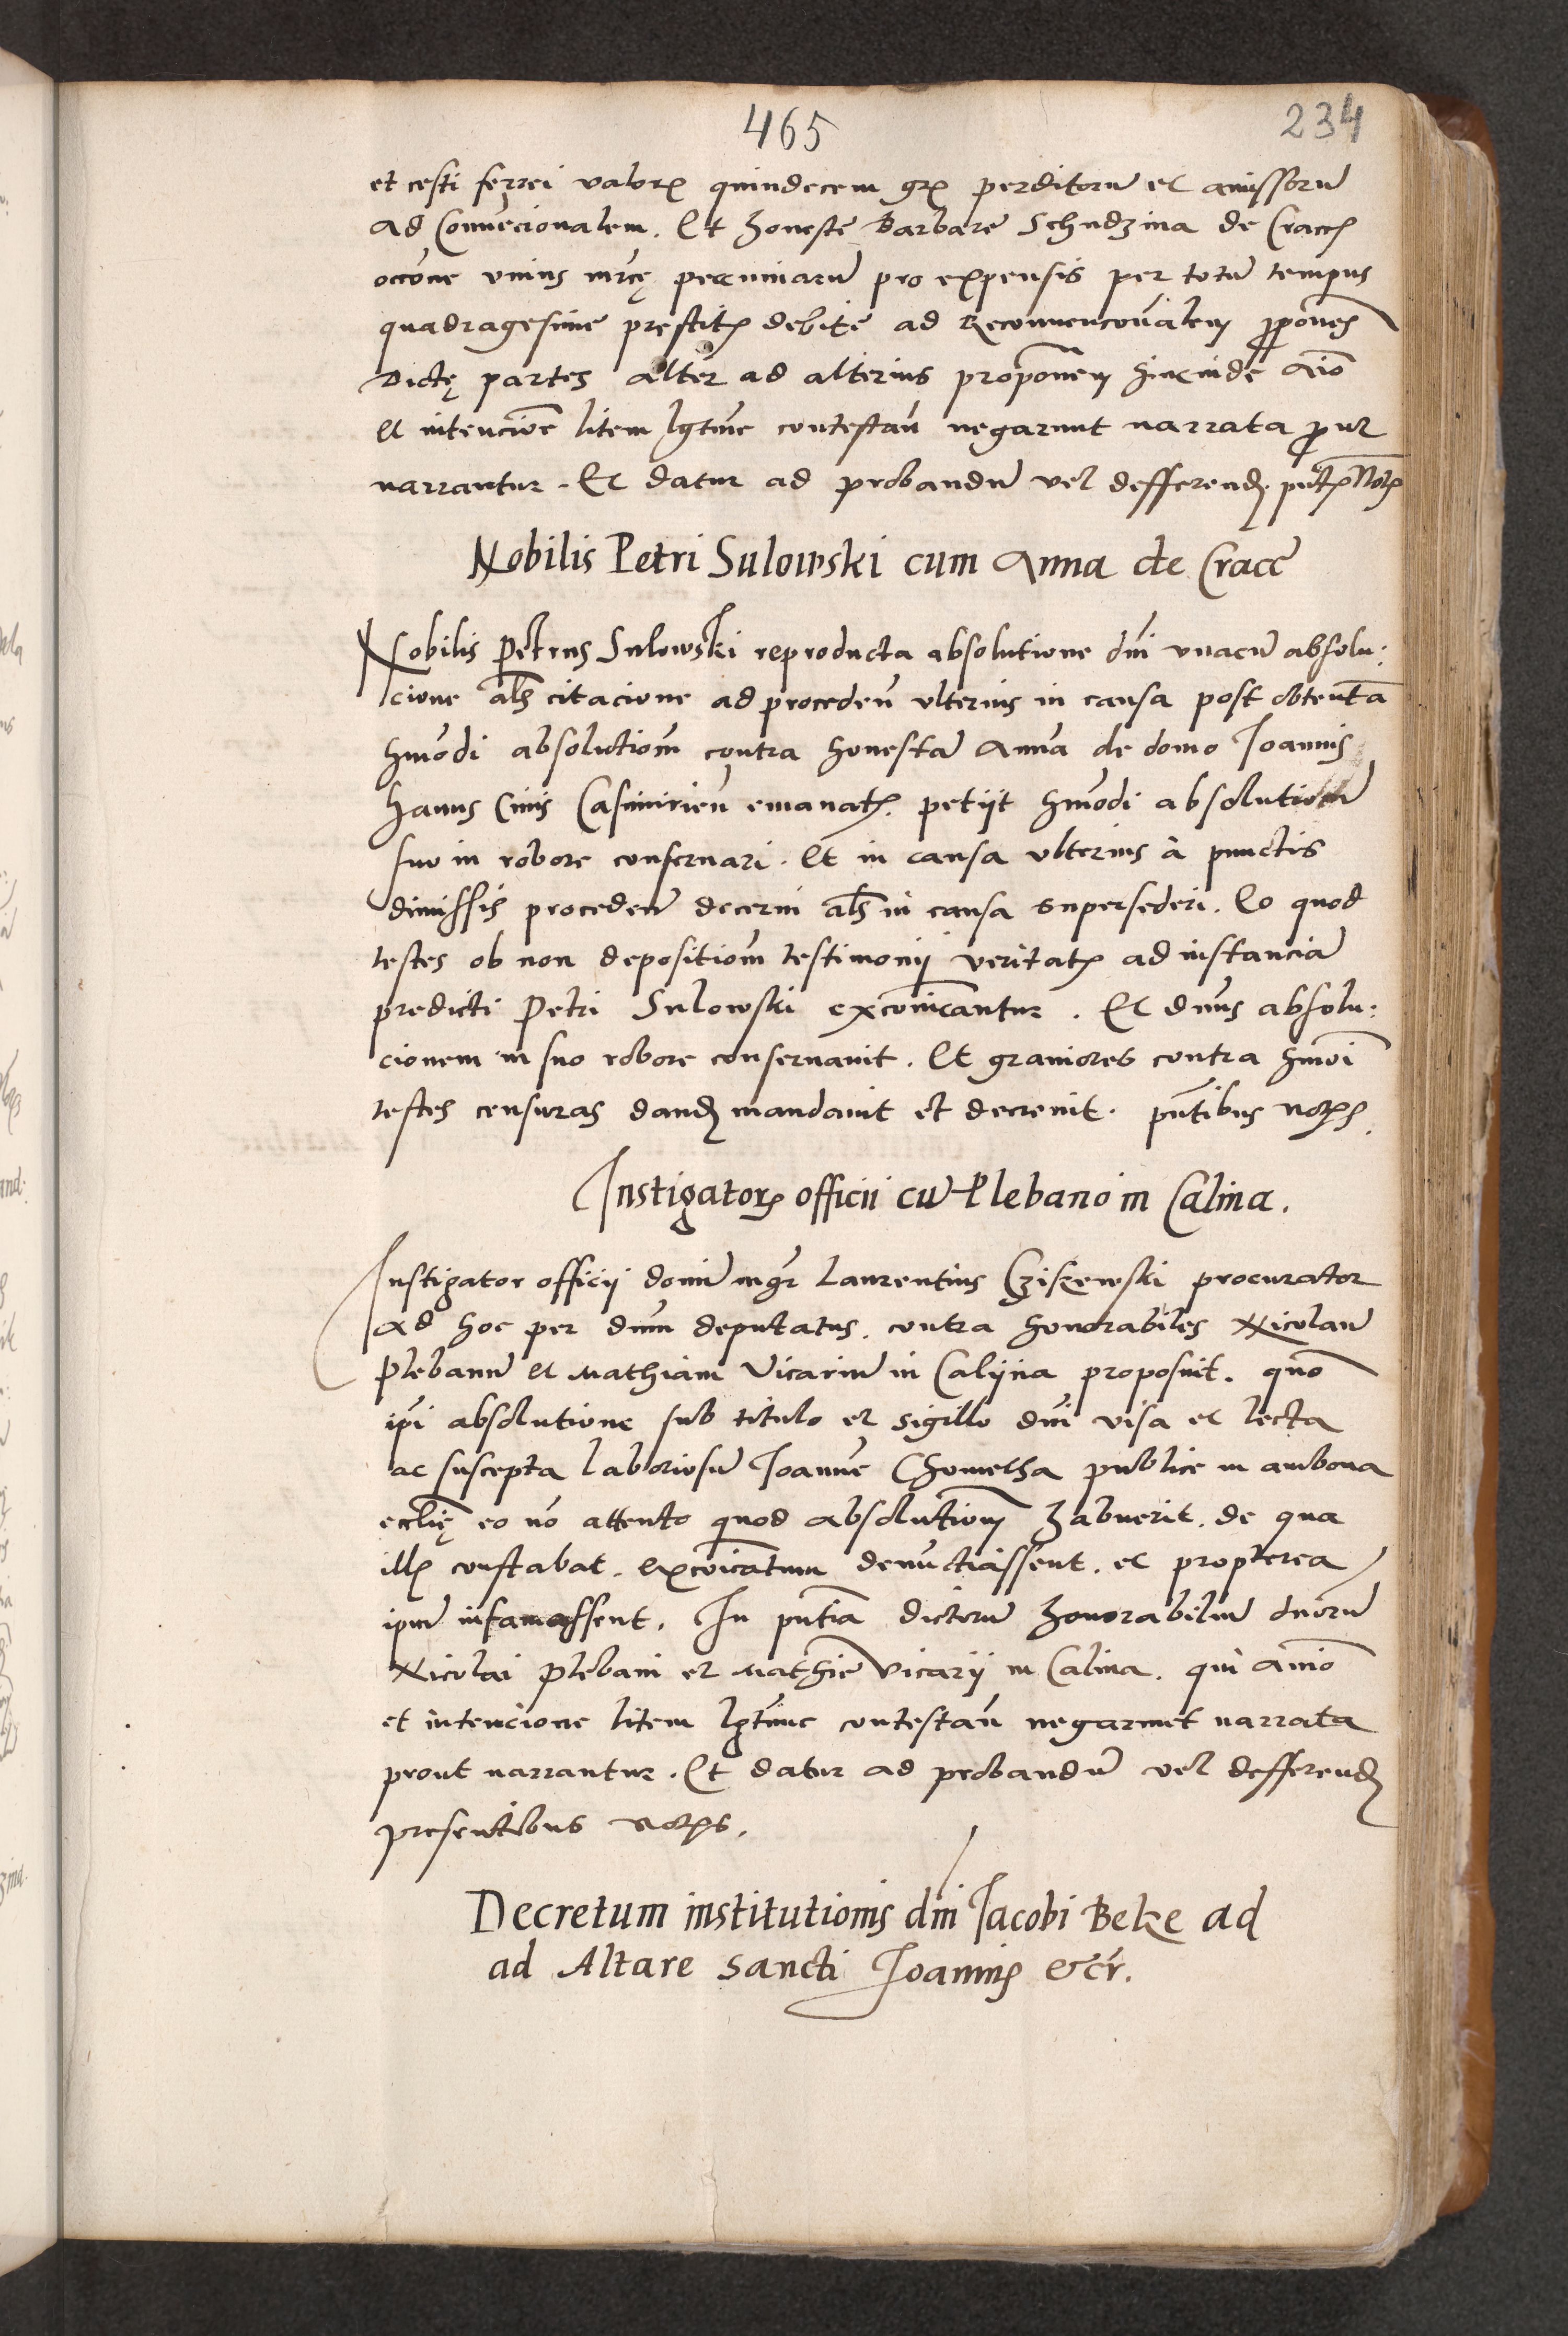 465
234
et cesti ferrei valoris quindecem grs perditorum et amissorum
ad Convēcionalem. Et honeste Barbare Schudzina de Cracca
occōne vnius mrce pecuniarum pro expensis per totum tempus
quadragesime prestitis debite ad Reconvencōnalem ppōnes
Dictę partes alter ad alterius propōnem hincinde aīo
et intencione litem lgtme contestan negarunt narrata prout
narrantur. Et datur ad probandum vel defferend. pntibus Notis
Nobilis Petri Sulowski cum Anna de Cracc
Nobilis Petrus Sulowski reproducta absolutione dni vnacum absolu:
cione als citacione ad proceden vlterius in causa post obtentā
hmōdi absolutiom contra honestam annam de domo Joannis
hanus Civis Casimirien emanat. petiit hmōdi absolutiom
suo in robore conservari. Et in causa vlterius à punctis
dimissis proceden decerni als in causa supersederi. Eo quod
testes ob non depositiom testimonij veritatis ad instanciam
predicti Petri Sulowski excōmicantur. Et dnus absolu:
cionem in suo robore conservavit. Et graviores contra hmōi
testes censuras dand mandavit et decrevit. pntibus notis.
Instigatoris officii cum Plebano in Calina.
Instigator officij domini mgr Laurentius Cziżewski procurator
ad hoc per dnm deputatus. contra honorabiles Nicolaum
Plebanum et Mathiam Vicarium in Calijna proposuit. quō
ipi absolutione sub titulo et sigillo dni visa et lecta
ac suscepta laboriosum Joannem Chometha publice in ambona
ecclię eo nō attento quod absolutiom habuerit. de qua
illis constabat. excōicatum denunctiassent. et propterea
ipum infamassent. In pntia dictorum honorabilium dnorum
Nicolai plebani et Mathie Vicarij in Calina. qui animo
et intencione litem lgtme contestan negarunt narrata
prout narrantur. Et datur ad probandum vel defferend
presentibus notis.
Decretum institutionis dni Jacobi Beke ad
ad Altare Sancti Joannis etcr.